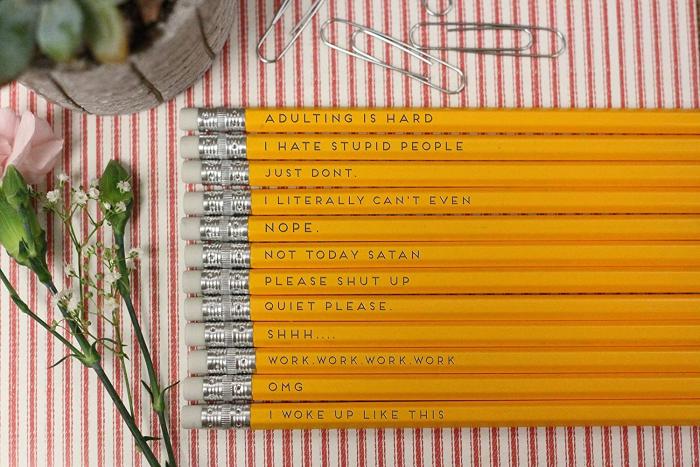 ADULTING IS HARD
I HATE STUPID PEOPLE
JUST DONT.
I LITERALLY CAN'T EVEN
NOPE.
NOT TODAY SATAN
PLEASE SHUT UP
QUIET PLEASE.
SHHH....
WORK.WORK.WORK.WORK
OMG
I WOKE UP LIKE THIS